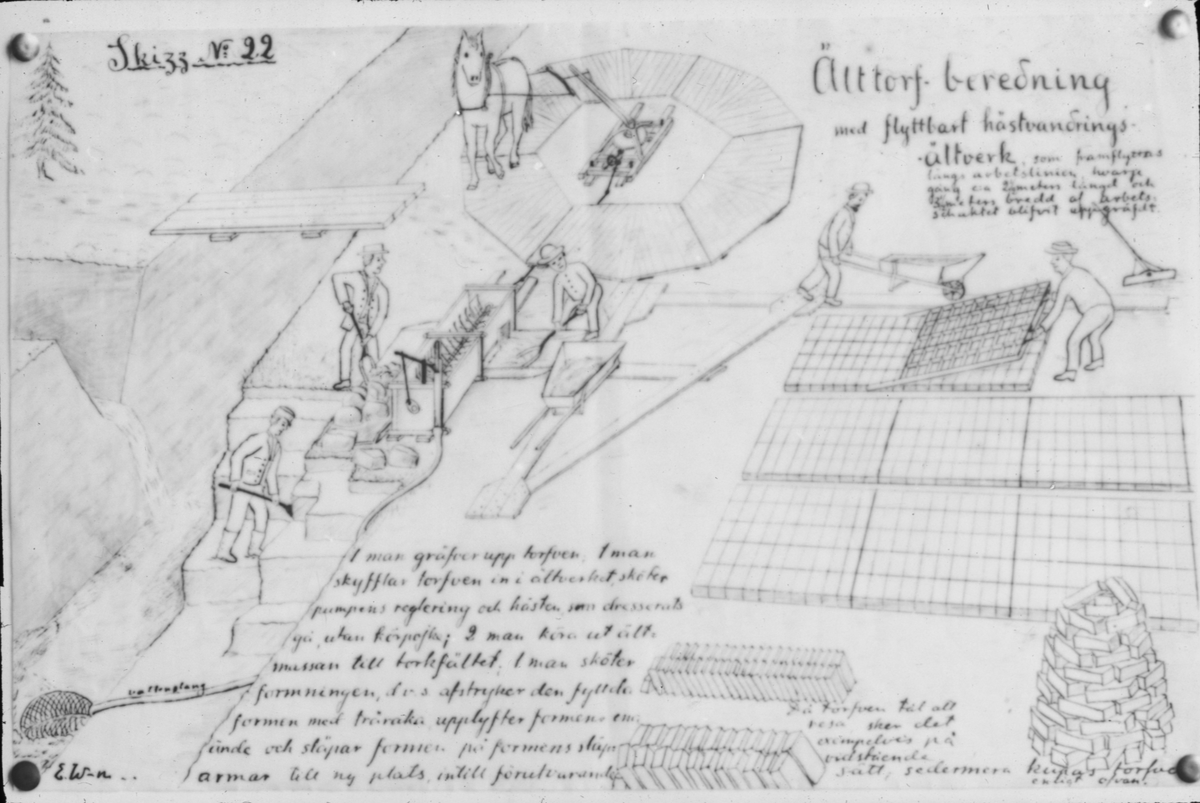 Skizz. Nº 22
Älttorf-beredning
med flyttbart hästvandrings-
-ältverk, som framflyttas
längs arbetslinien, hvarje
gång ca meters längd och
meters bredd af arbets-
schaktet blifvit uppgräfdt.
1 man gräfver upp torfven, 1 man
skyfflar torfven in i ältverket, sköter
pumpens reglering och hästen, som dresserats
gå utan körpojke; 2 man köra ut ält-
massan till torkfältet, 1 man sköter
formningen, d.v.s. afstryker den fyllda
formen med träraka, upplyfter formens ena
ände och stöpar formen på formens stöp-
armar till ny plats, intill förutvarande
vattenslang
E.W-n..
Då torfven tål att
resa sker det
exempelvis på
vidstående
sätt, sedermera kupas torfven
enligt ofvan.